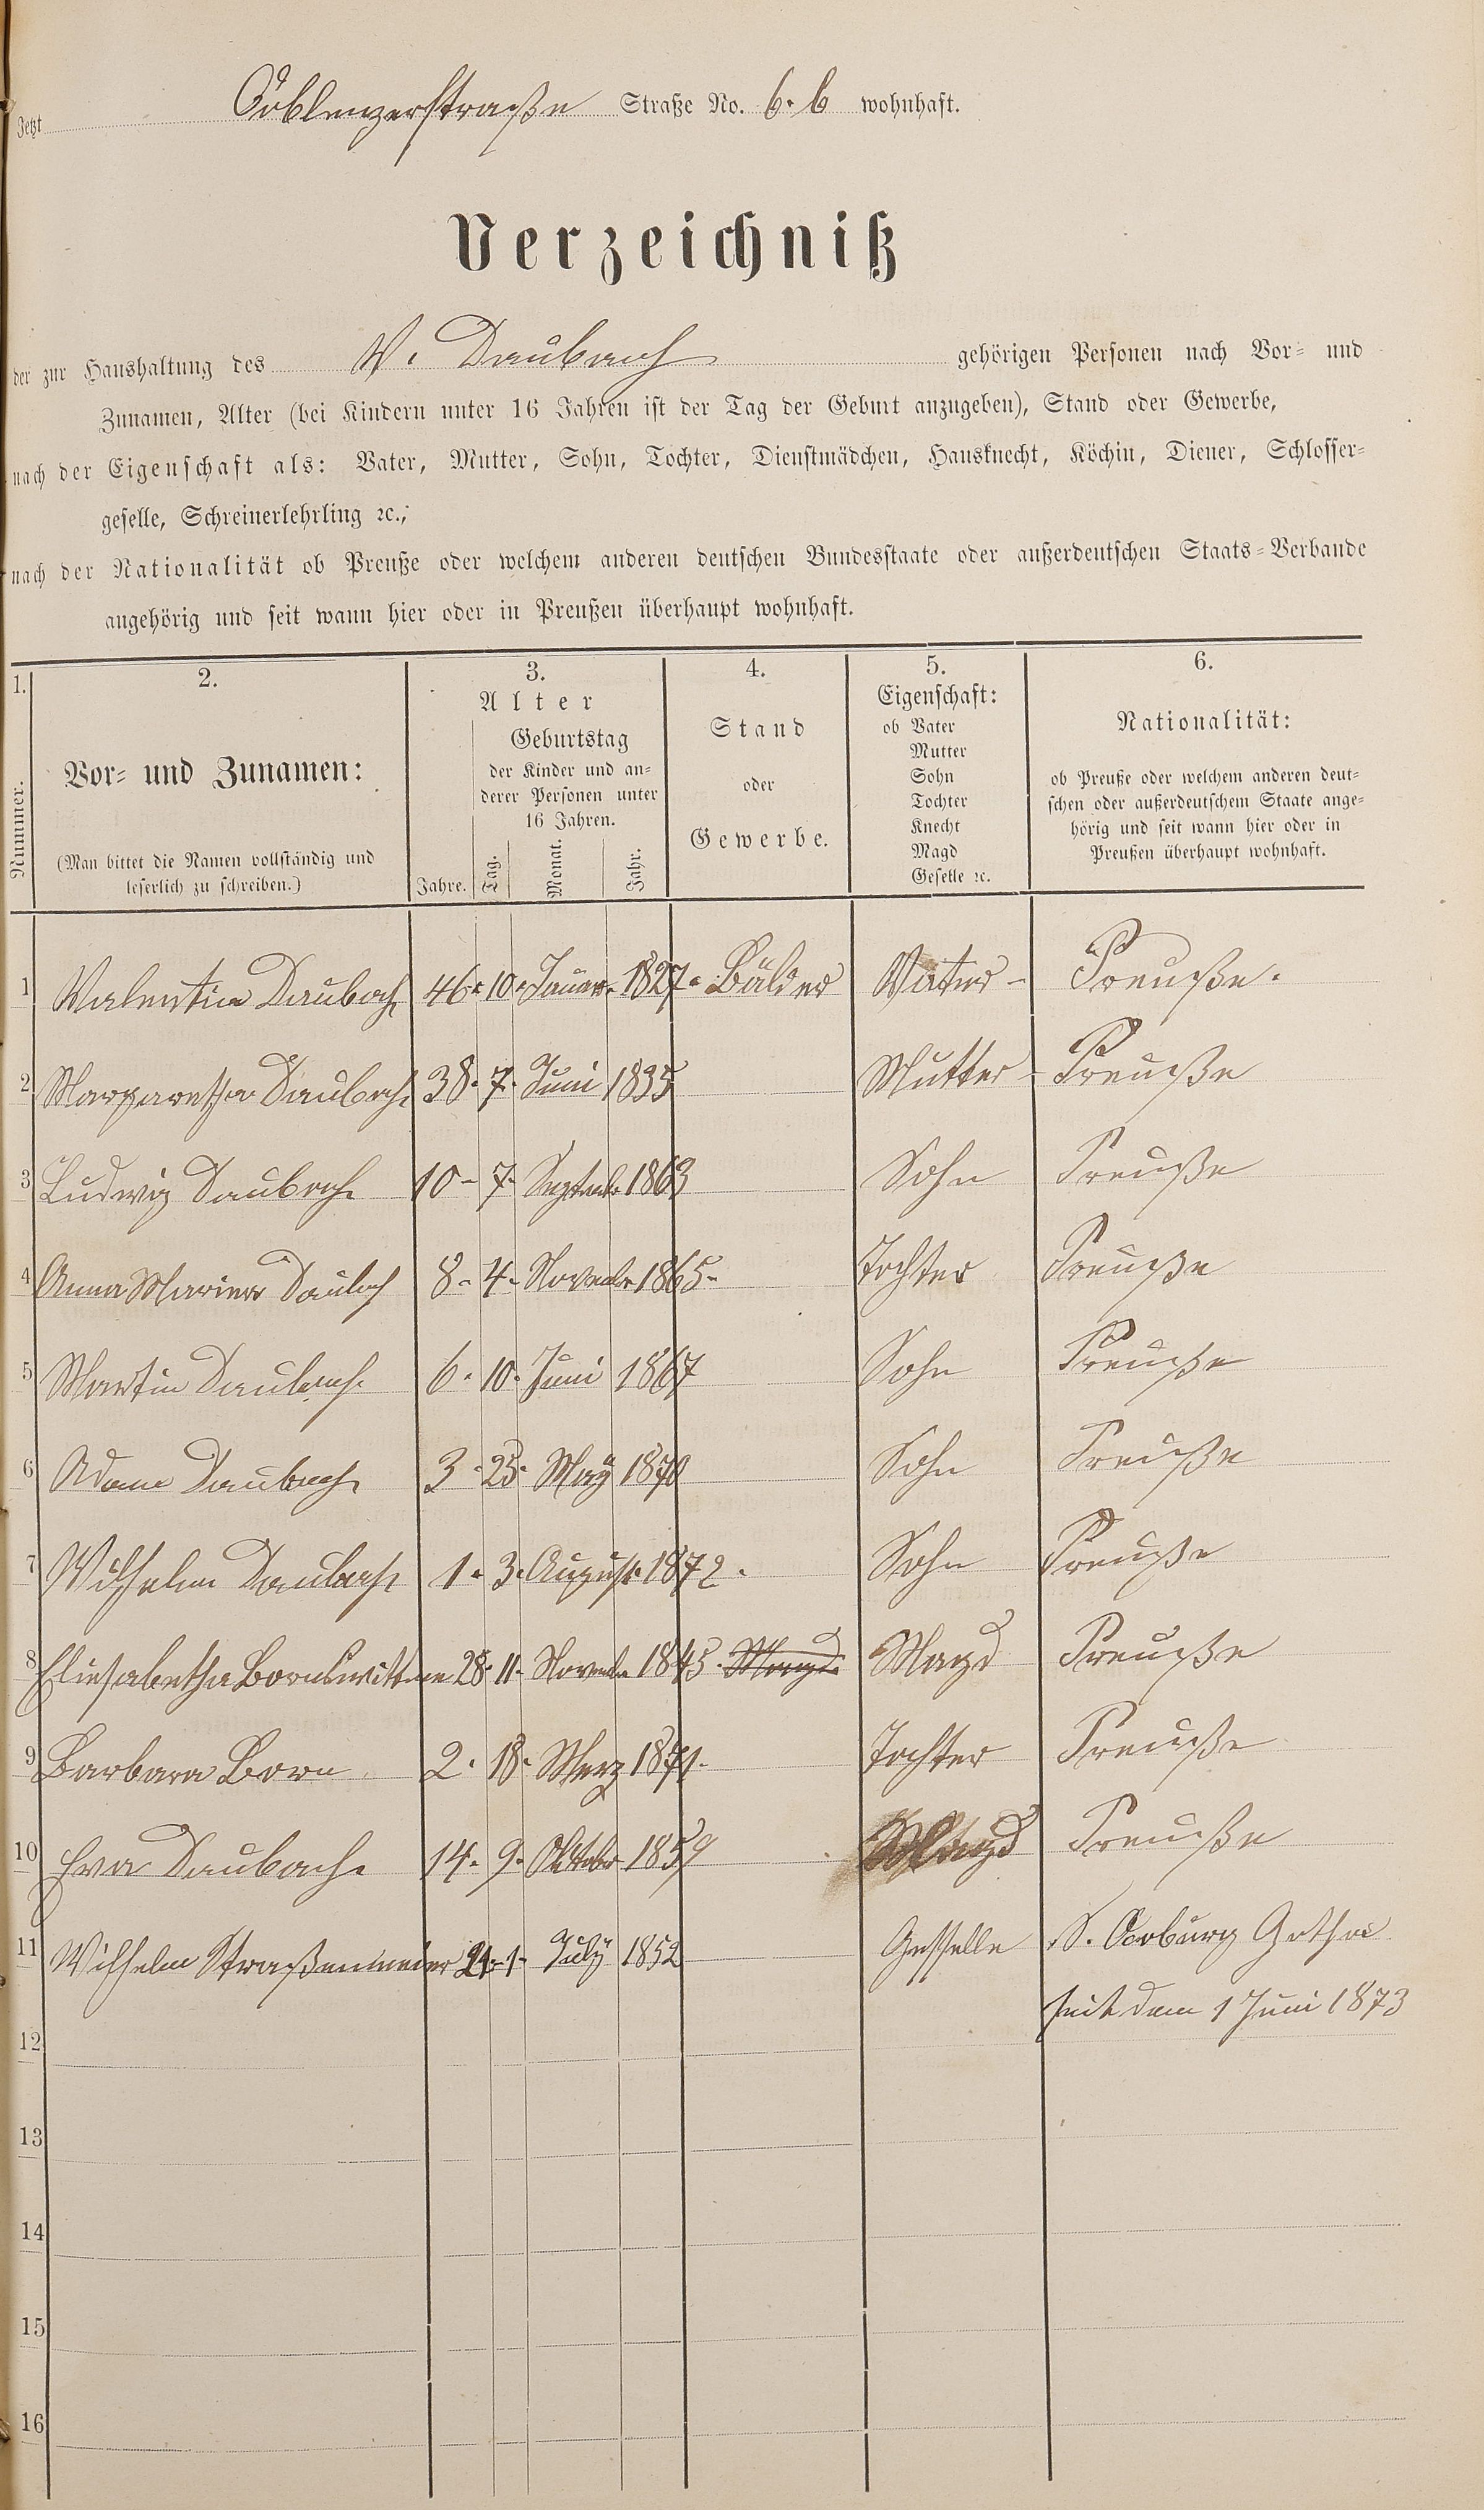 Jetzt Coblenzerstraße Straße No. 6. b wohnhaft.
Verzeichniß
der zur Haushaltung des V. Daubach gehörigen Personen nach Vor- und
Zunamen, Alter (bei Kindern unter 16 Jahren ist der Tag der Geburt anzugeben), Stand oder Gewerbe,
nach der Eigenschaft als: Vater, Mutter, Sohn, Tochter, Dienstmädchen, Hausknecht, Köchin, Diener, Schlosser-
geselle, Schreinerlehrling ꝛc.;
nach der Nationalität ob Preuße oder welchem anderen deutschen Bundesstaate oder außerdeutschen Staats-Verbande
angehörig und seit wann hier oder in Preußen überhaupt wohnhaft.
1.
Nummer.
2.
Vor- und Zunamen:
(Man bittet die Namen vollständig und
leserlich zu schreiben.)
3.
Alter
Geburtstag
der Kinder und an-
derer Personen unter
16 Jahren.
Jahre. Tag. Monat. Jahr.
4.
Stand
oder
Gewerbe.
5.
Eigenschaft:
ob Vater
Mutter
Sohn
Tochter
Knecht
Magd
Geselle ꝛc.
6.
Nationalität:
ob Preuße oder welchem anderen deut-
schen oder außerdeutschem Staate ange-
hörig und seit wann hier oder in
Preußen überhaupt wohnhaft.
1 Valentin Daubach 46 10 Januar 1827 Bäker Vater Preuße.
2 Margaretha Daubach 38 7 Juni 1835 Mutter Preuße
3 Ludwig Daubach 10 7 Septemb. 1863 Sohn Preuße
4 Anna Maria Daubach 8 4 Novemb. 1865 Tochter Preuße
5 Martin Daubach 6 10 Juni 1867 Sohn Preuße
6 Adam Daubach 3 25 May 1870 Sohn Preuße
7 Wilhelm Daubach 1 3 August 1872 Sohn Preuße
8 Eliesabetha Born 28 11 Novemb. 1845 Magd Magd Preuße
9 Barbara Born 2 18 Merz 1871 Tochter Preuße
10 Eva Daubach 14 9 Oktober 1859 Magd Preuße
11 Wilhelm Straßenmeier 21 1 July 1852 Gesselle S. Coburg Gotha
seit dem 1 Juni 1873
12
13
14
15
16